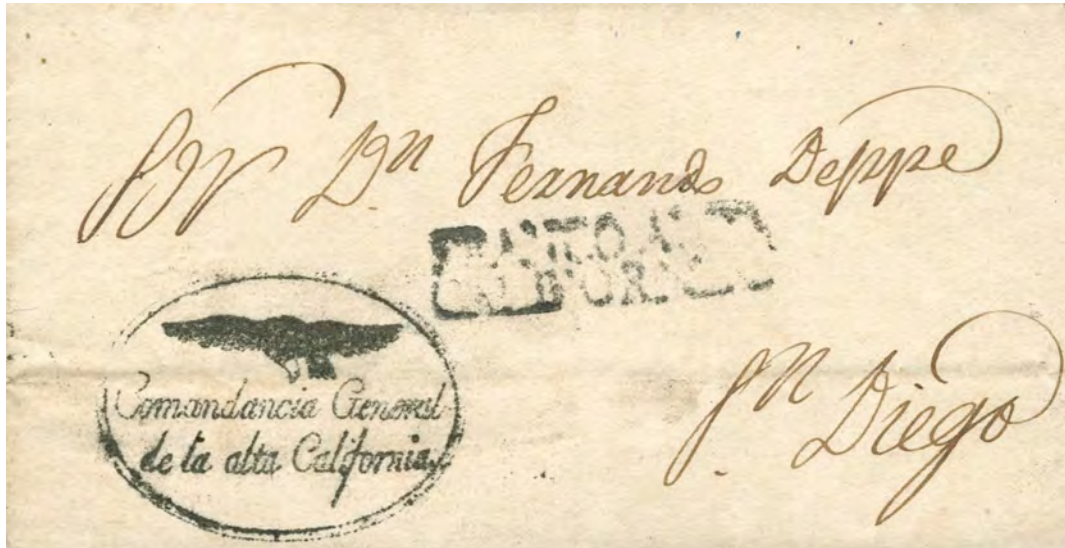 Sor Dn Fernando Deppe
FRANCO.
Sn Diego
Comandancia General
de la alta California